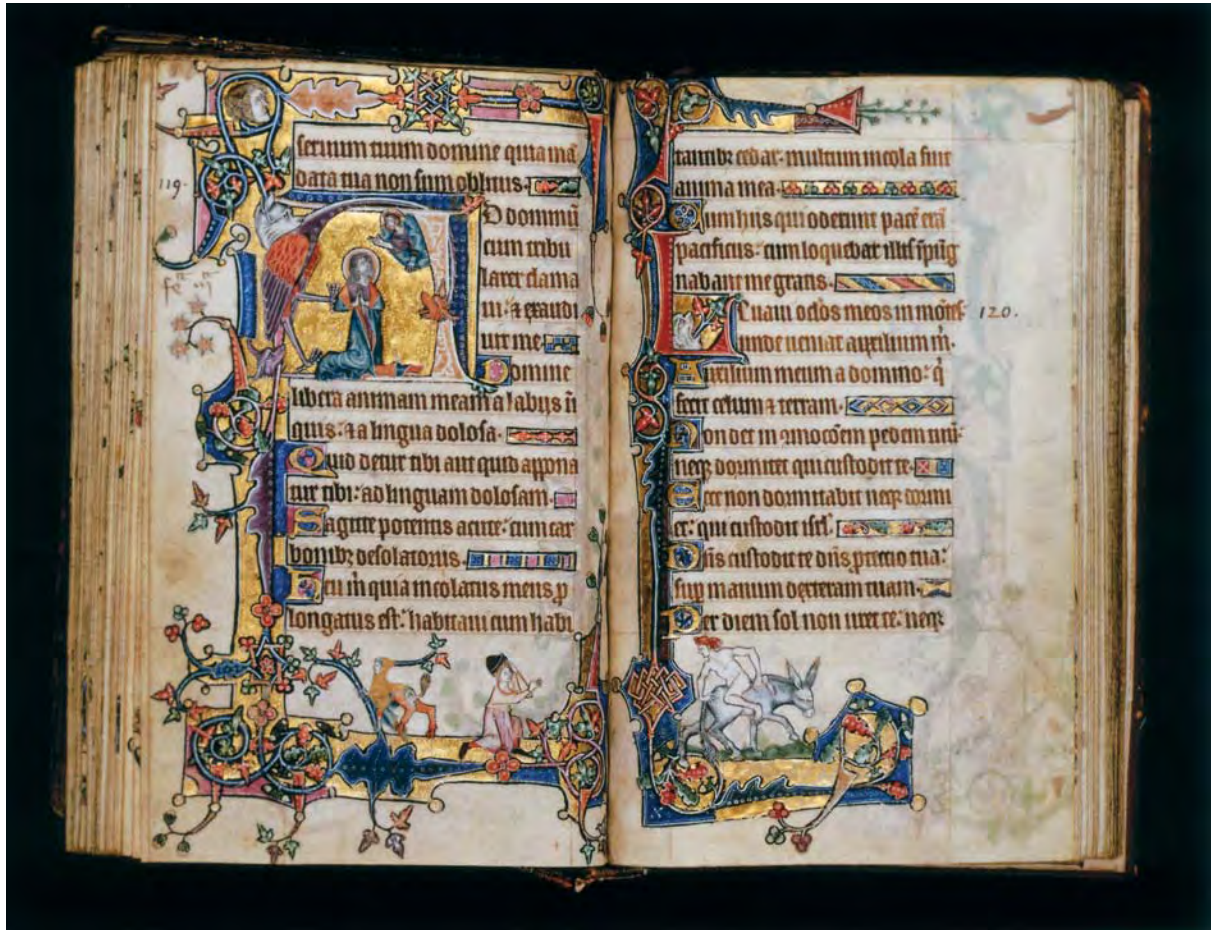 seruum tuum domine quia mā
data tua non sum oblitus.
119.
AD dominū
cum tribu
larer clama
ui: & exaudi
uit me.
Domine
libera animam meam a labijs in
quis: & a lingua dolosa.
Quid detur tibi aut quid appona
tur tibi: ad linguam dolosam.
Sagitte potentis acute: cum car
bonibz desolatoriis.
Heu m̄ quia incolatus meus p
longatus est: habitaui cum habi
tantibz cedar. multum incola fuit
anima mea.
Cum hiis qui oderunt pacē erā
pacificus: cum loquebar illis īpug
nabant me gratis.
Leuaui oc̄los meos in mōtes 120.
unde ueniat auxilium m̄.
Auxilium meum a domino: q̄
fecit celum & terram.
Non det in ꝯmocōem pedem tuū:
neqz dormitet qui custodit te.
Ecce non dormitabit neqz dormi
et: qui custodit isrl̄.
Dn̄s custodit te dn̄s ꝓtectio tua:
suꝑ manum dexteram tuam.
Per diem sol non uret te: neqz